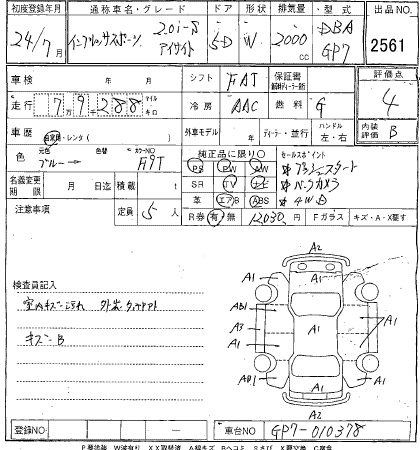 初度登録年月 通称車名・グレード ドア 形状 排気量 型式 出品NO.
24/7 インプレッサスポーツ 2.0i-S アイサイト 5D W 2000 cc DBA GP7 2561
車検 年 月 シフト FAT 保証書 評価点
走行 7 9 288 マイル キロ 冷房 AAC 燃料 G 4
車歴 自家用・レンタ( ) 外車モデル ディーラー・並行 ハンドル 左・右 内装 B
色 元色 ブルー→ 色替 カラーNO 純正品に限り〇 セールスポイント
PS PW AW プッシュスタート
名義変更期限 月 日迄 積載 t SR TV ナビ バックカメラ
革 エアB ABS 4WD
注意事項 定員 5 人 R券 有 無 12030円 Fガラス キズ・A・X要す
A2
検査員記入 A1 A1 A1
室内キズこすれ AB1 A1
A3 A1 A1
キズ・B A1
AB1 A1 A1
A2
登録NO ― 車台NO GP7-010378